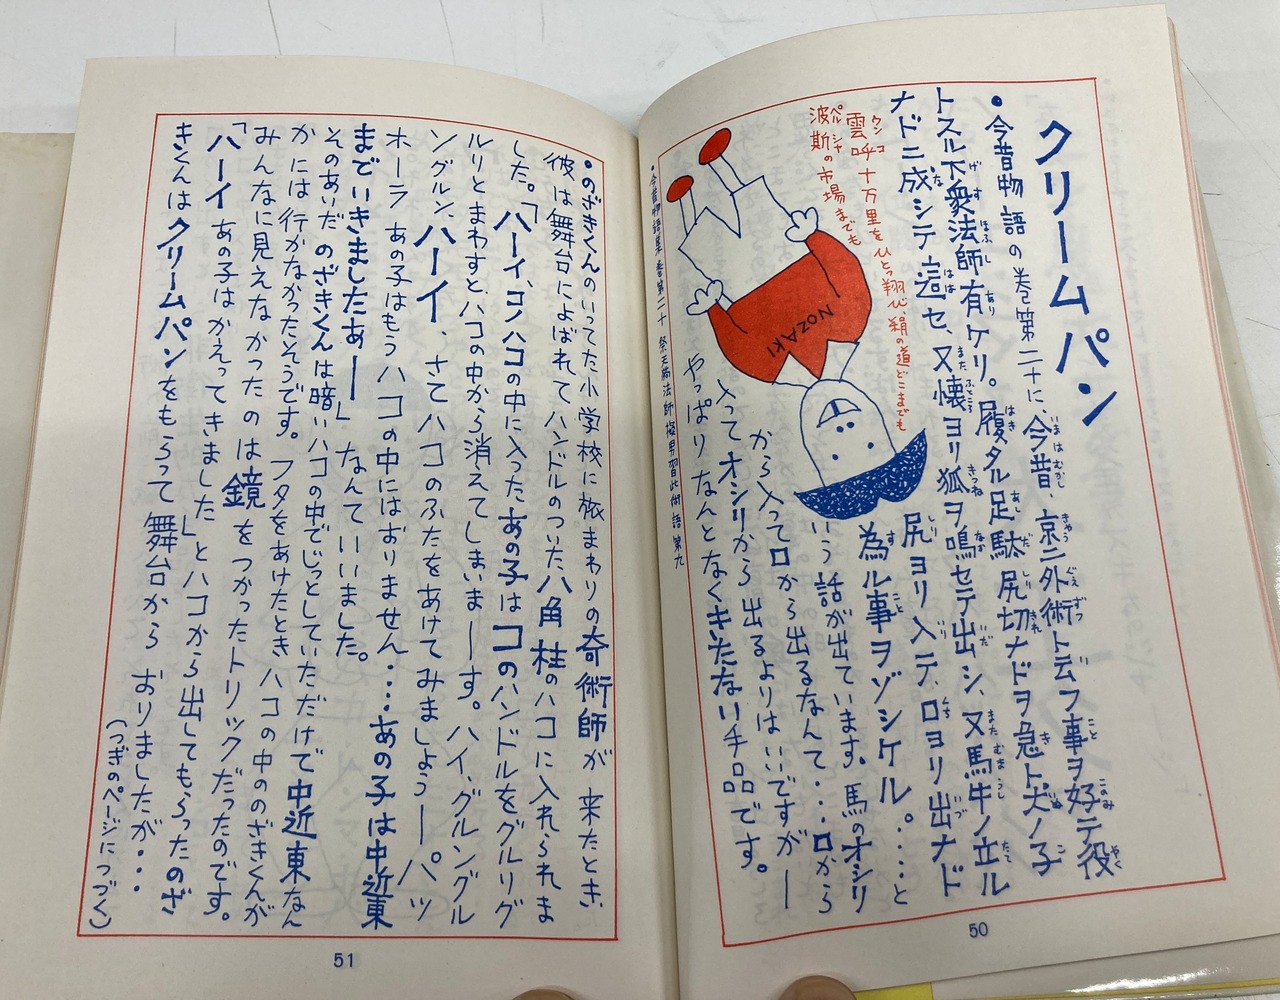 クリームパン
•今昔物語の巻第二十に、今昔、京ニ外術ト云フ事ヲ好テ役
トスル下衆法師有ケリ。履タル足駄 尻切ナドヲ急ト犬ノ子
ナドニ成シテ這セ、又懐ヨリ狐ヲ鳴セテ出シ、又馬牛ノ立ル
尻ヨリ入テ、口ヨリ出ナド
為ル事ヲゾシケル。‥‥と
いう話が出ています。馬のオシリ
から入って口から出るなんて‥‥口から
入ってオシリから出るよりはいいですがー
やっぱりなんとなくキたない手品です。
雲呼十万里をひとっ翔び、絹の道どこまでも
波斯の市場までも
NOZAKI
•今昔物語集 巻第二十 祭天狗法師擬男習此術語 第九
50
•のざきくんのいってた小学校に旅まわりの奇術師が 来たとき、
彼は舞台によばれてハンドルのついた八角柱のハコに入れられま
した。「ハーイ、コノハコの中に入ったあの子はコのハンドルをグルリグ
ルリとまわすと、ハコの中から消えてしまいまーす。ハイ、グルングル
ングルン、ハーイ、さてハコのふたをあけてみましょうー パッ
ホーラ あの子はもうハコの中にはおりません‥‥あの子は中近東
までいきましたあー」なんていいました。
そのあいだ のざきくんは暗いハコの中でじっとしていただけで中近東なん
かには行かなかったそうです。フタをあけたとき ハコの中ののざきくんが
みんなに見えなかったのは鏡をつかったトリックだったのです。
「ハーイ あの子はかえってきました」とハコから出してもらったのざ
きくんはクリームパンをもらって舞台から おりましたが・・・
(つぎのページにつづく)
51